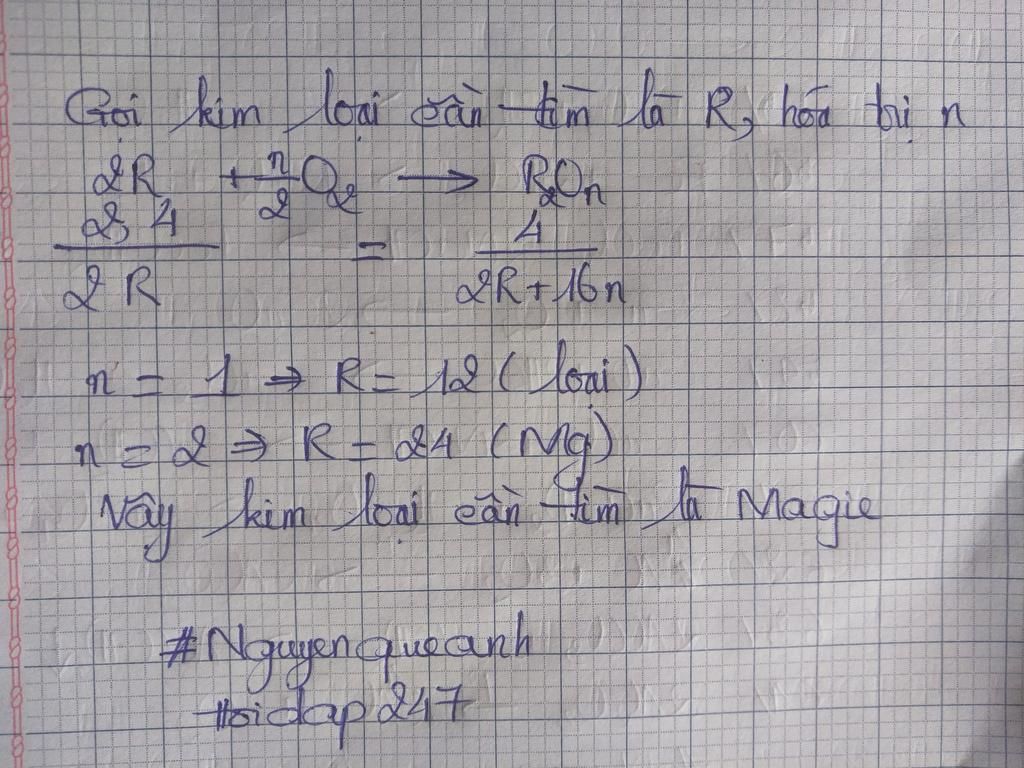 Gọi kim loại cần tìm là R, hóa trị n
2R + n/2 O₂ → R₂Oₙ
2,4/2R = 4/(2R+16n)
n = 1 ⇒ R = 12 (loại)
n = 2 ⇒ R = 24 (Mg)
Vậy kim loại cần tìm là Magie
#Nguyenqueanh
Hoidap247